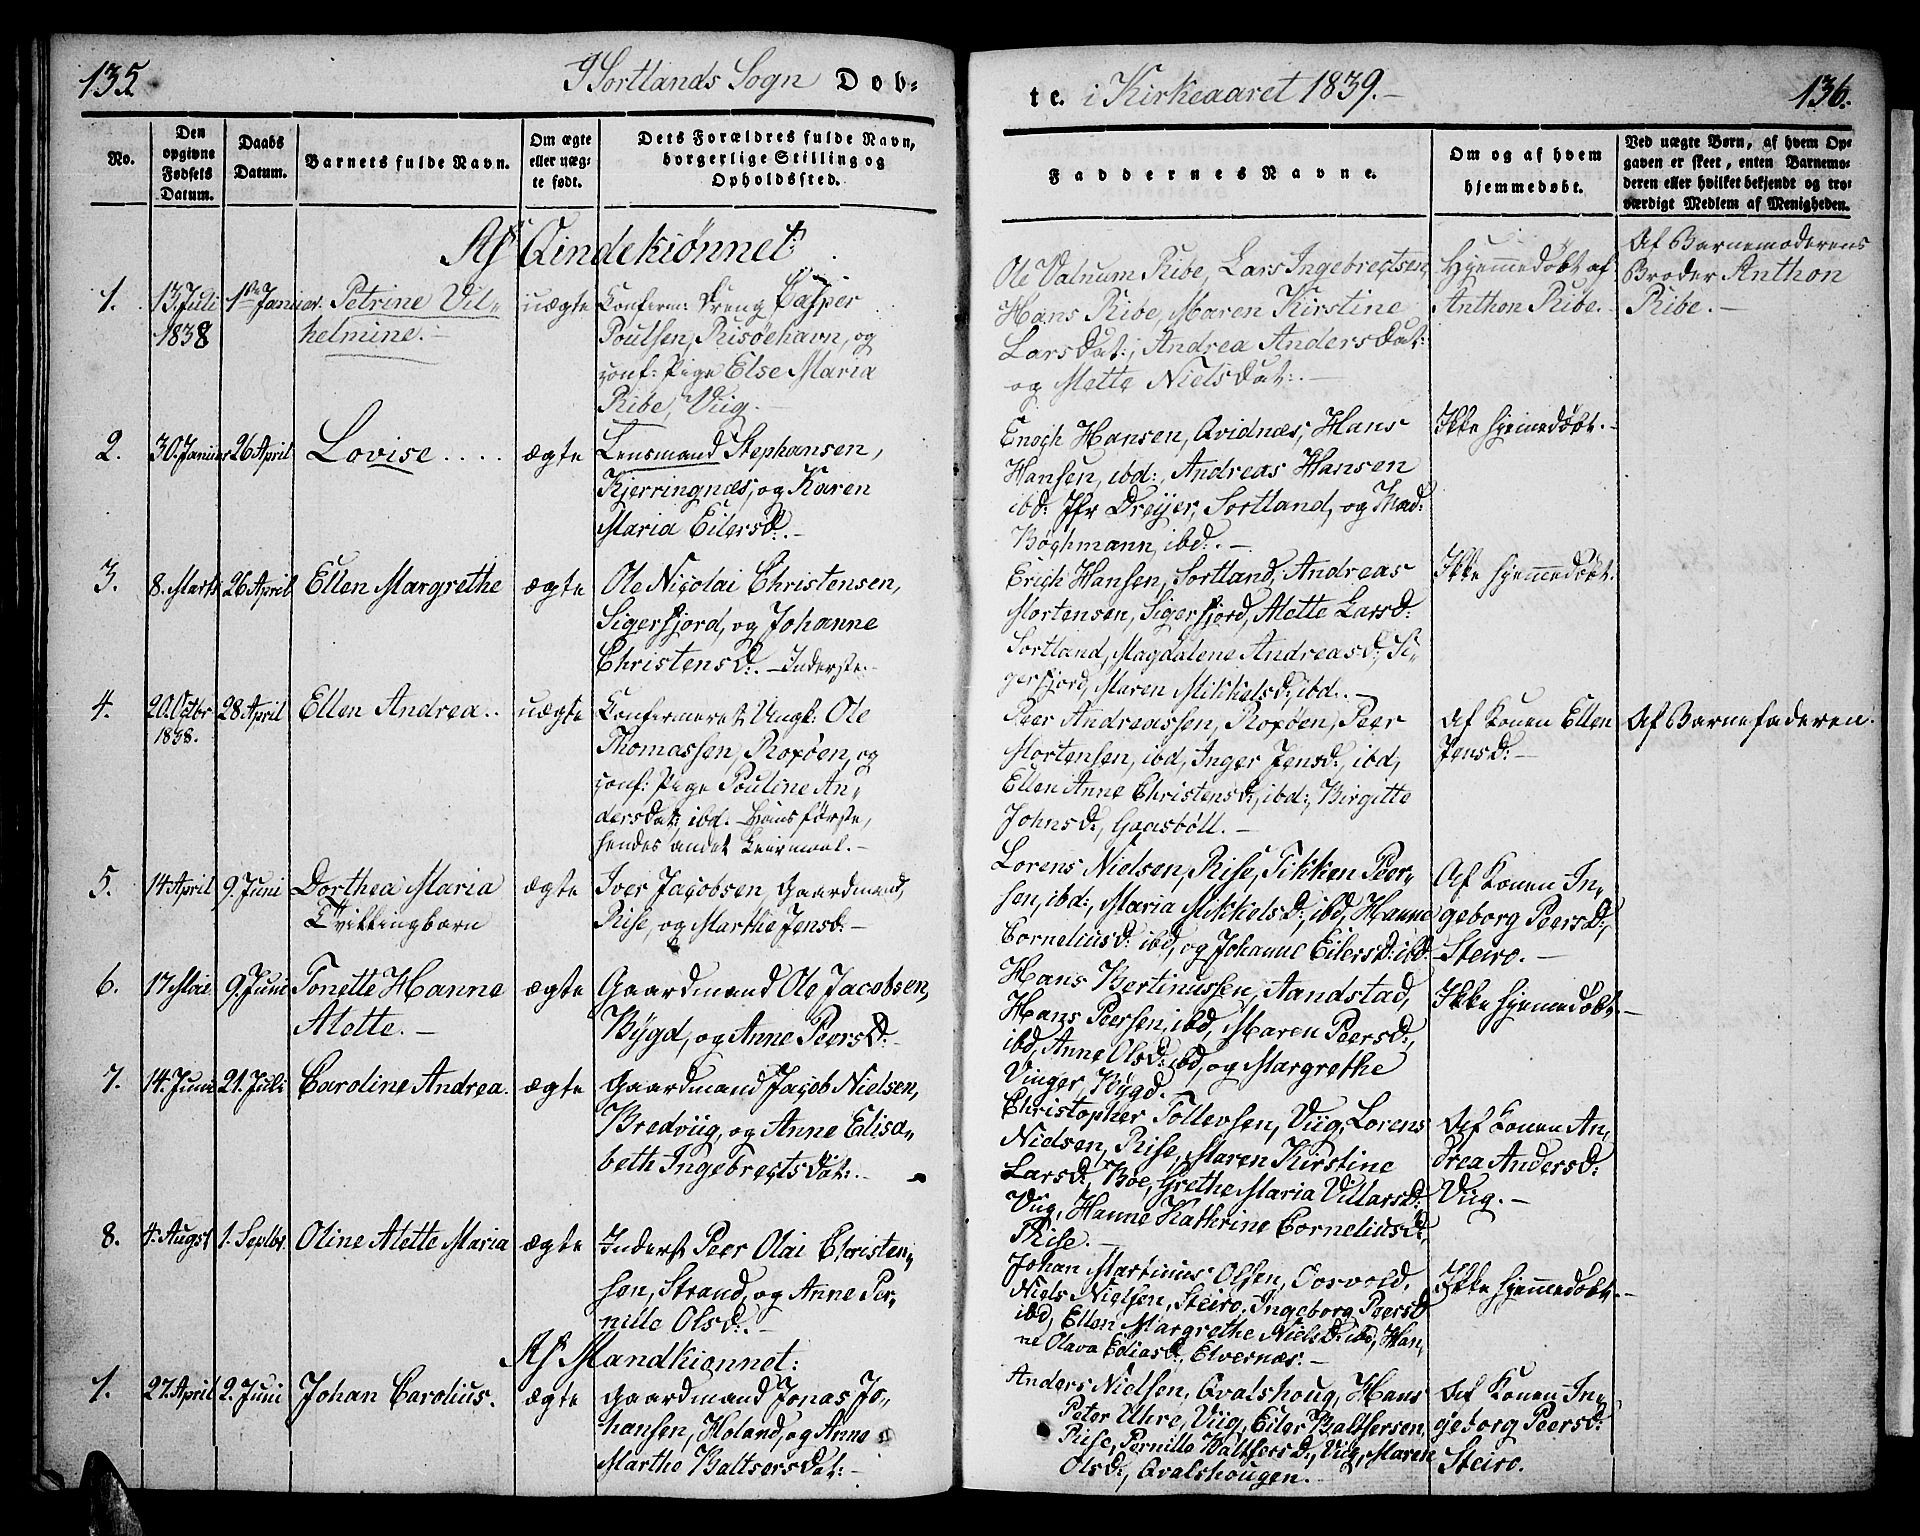 135
I Sortlands Sogn Døb-
No.
Den opgivne Fødsels Datum.
Daabs Datum.
Barnets fulde Navn.
Om ægte eller uæg-te født.
Dets Forældres fulde Navn, borgerlige Stilling og Opholdssted.
Af Qindekiønnet:
1. 13 Juli 1838 1ste Januar. Petrine Vil-
helmine.- uægte
Confirm: Dreng Casper
Poulsen, Risøehavn, og
conf: Pige Else Maria
Ribe, Viig.-
2. 30. Januar 26 April Lovise.... ægte
Lensmand Stephansen,
Kjerringnæs, og Karen
Maria Eilersd:.-
3. 8. Marts 26 April Ellen Margrethe ægte
Ole Nicolai Christensen,
Sigerfjord, og Johanne
Christensd:. -Inderste.-
4. 20. Octbr 1838. 28 April Ellen Andrea.. uægte
Confirmeret Ungk: Ole
Thomassen, Roxøen, og
conf: Pige Pouline An-
dersdat:, ibd. Hans første,
hendes andet Leiermaal.-
5. 14 April 9. Juni Dorthea Maria
Tvillingbarn ægte
Iver Jacobsen, Gaardmand,
Rise, og Marthe Jensd:-
6. 17 Mai 9. Juni Tonette Hanne
Alette.- ægte
Gaardmand Ole Jacobsen,
Bygd, og Anne Peersd:-
7. 14. Juni 21. Juli Caroline Andrea. ægte
Gaardmand Jacob Nielsen,
Bredviig, og Anne Elisa-
beth Ingebregtsdat:.-
8. 4. Augst 1. Septbr. Oline Alette Maria ægte
Inderst Peer Olai Christen-
sen, Strand, og Anne Per-
nille Olsd:.-
Af Mandkiønnet:
1. 27. April 2. Juni Johan Carolius. ægte
Gaardmand Jonas Jo-
hansen, Holand, og Anne
Marthe Baltsersdat:-
te. i Kirkeaaret 1839.-
136.
Faddernes Navne.
Om og af hvem hjemmedøbt.
Ved uægte Børn, af hvem Op-
gaven er skeet, enten Barnemo-
deren eller hvilket bekjendt og tro-
værdigt Medlem af Menigheden.
Ole Valnum Ribe, Lars Ingebregtsen,
Hans Ribe, Maren Kirstine
Larsdat:, Andrea Andersdat:
og Mette Nielsdat:.-
Hjemmedøbt af
Anthon Ribe.-
Af Barnemoderens
Broder Anthon
Ribe.-
Enoch Hansen, Qvidnæs, Hans
Hansen, ibd:, Andreas Hansen
ibd: Jfr Dreyer, Sortland, og Mad:
Bøchmann, ibd:.-
Ikke hjemmedøbt.-
Erich Hansen, Sortland, Andreas
Mortensen, Sigerfjord, Alette Larsd:
Sortland, Magdalene Andreasd:, Si-
gerfjord, Maren Mikkelsd:, ibd:.-
Ikke hjemmedøbt.
Peer Andreassen, Roxøen, Peer
Mortensen, ibd, Inger Jensd:, ibd,
Ellen Anne Christensd:, ibd:, Birgitte
Johnsd:, Gaasbøll.-
Af Konen Ellen
Jensd:-
Af Barnefaderen.
Lorens Nielsen, Rise, Tikken Peer-
sen, ibd:, Maria Mikkelsd:, ibd, Hanne
Corneliusd: ibd, og Johanne Eilersd: ibd:
Af Konen In-
geborg Peersd:,
Steiro.-
Hans Bertinussen, Aandstad,
Hans Peersen, ibd, Maren Peersd:,
ibd, Anne Olsd: ibd, og Margrethe
Vinger, Bygd.
Ikke hjemmedøbt.-
Christopher Tollevsen, Viig, Lorens
Nielsen, Rise, Maren Kirstine
Larsd:, Boe, Grethe Maria Villarsd:
Viig, Hanne Kathrine Corneliusd:,
Rise.-
Af Konen An-
drea Andersd:
Viig.-
Johan Martinus Olsen, Osvold,
Niels Nielsen, Steiro, Ingeborg Peersd
ibd, Ellen Margrethe Nielsd: ibd, Han-
ne Olava Ediasd:, Elvernæs.-
Ikke hjemmedøbt.-
Anders Nielsen, Qvalshoug, Hans
Peter Uhre, Viig, Eiler Baltsersen,
Rise, Pernille Baltsersd:, Viig, Maren
Olsd:, Qvalshougen.
Af Konen In-
geborg Peersd:
Steiro.